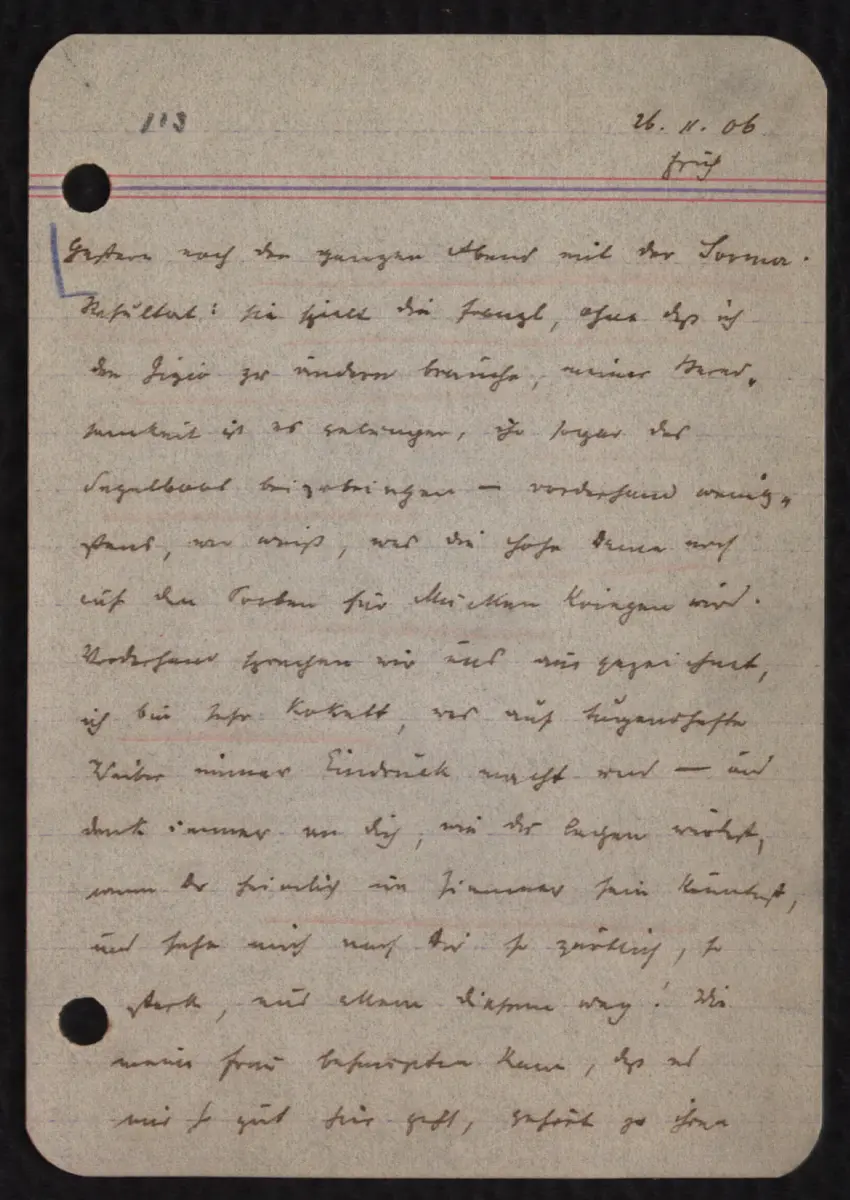 113
26. 11. 06
früh
Gestern noch den ganzen Abend mit der Sorma.
Resultat: sie spielt die Franzl, ohne daß ich
den Gigio zu ändern brauche, meiner Bered„
samkeit ist es gelungen, ihr sogar das
Segelboot beizubringen — vorderhand wenig„
stens, wer weiß, was die hohe Dame noch
auf den Proben für Mucken kriegen wird.
Vorderhand sprechen wir uns ausgezeichnet,
ich bin sehr kokett, was auf tugendhafte
Weiber immer Eindruck macht und — und
denk immer an Dich, wie Du lachen würdest,
wenn Du heimlich im Zimmer sein könntest,
und sehne mich nach Dir so zärtlich, so
stark, aus allem diesem weg! Wie
meine Frau behaupten kann, daß es
mir so gut hier geht, gehört zu ihren